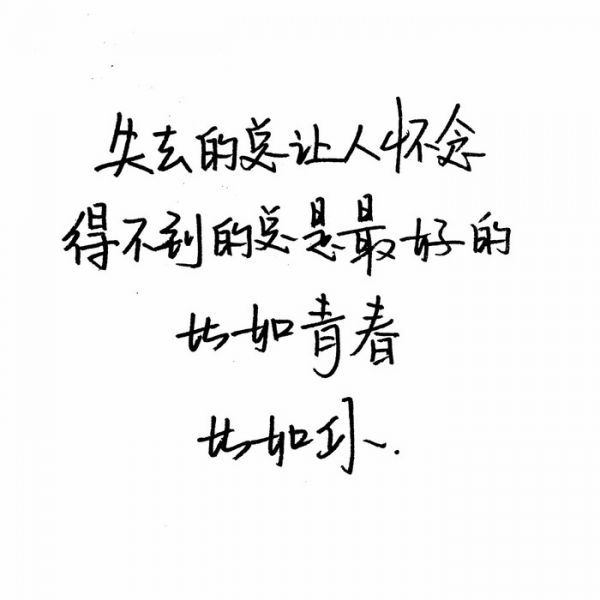 失去的总让人怀念
得不到的总是最好的
比如青春
比如你.